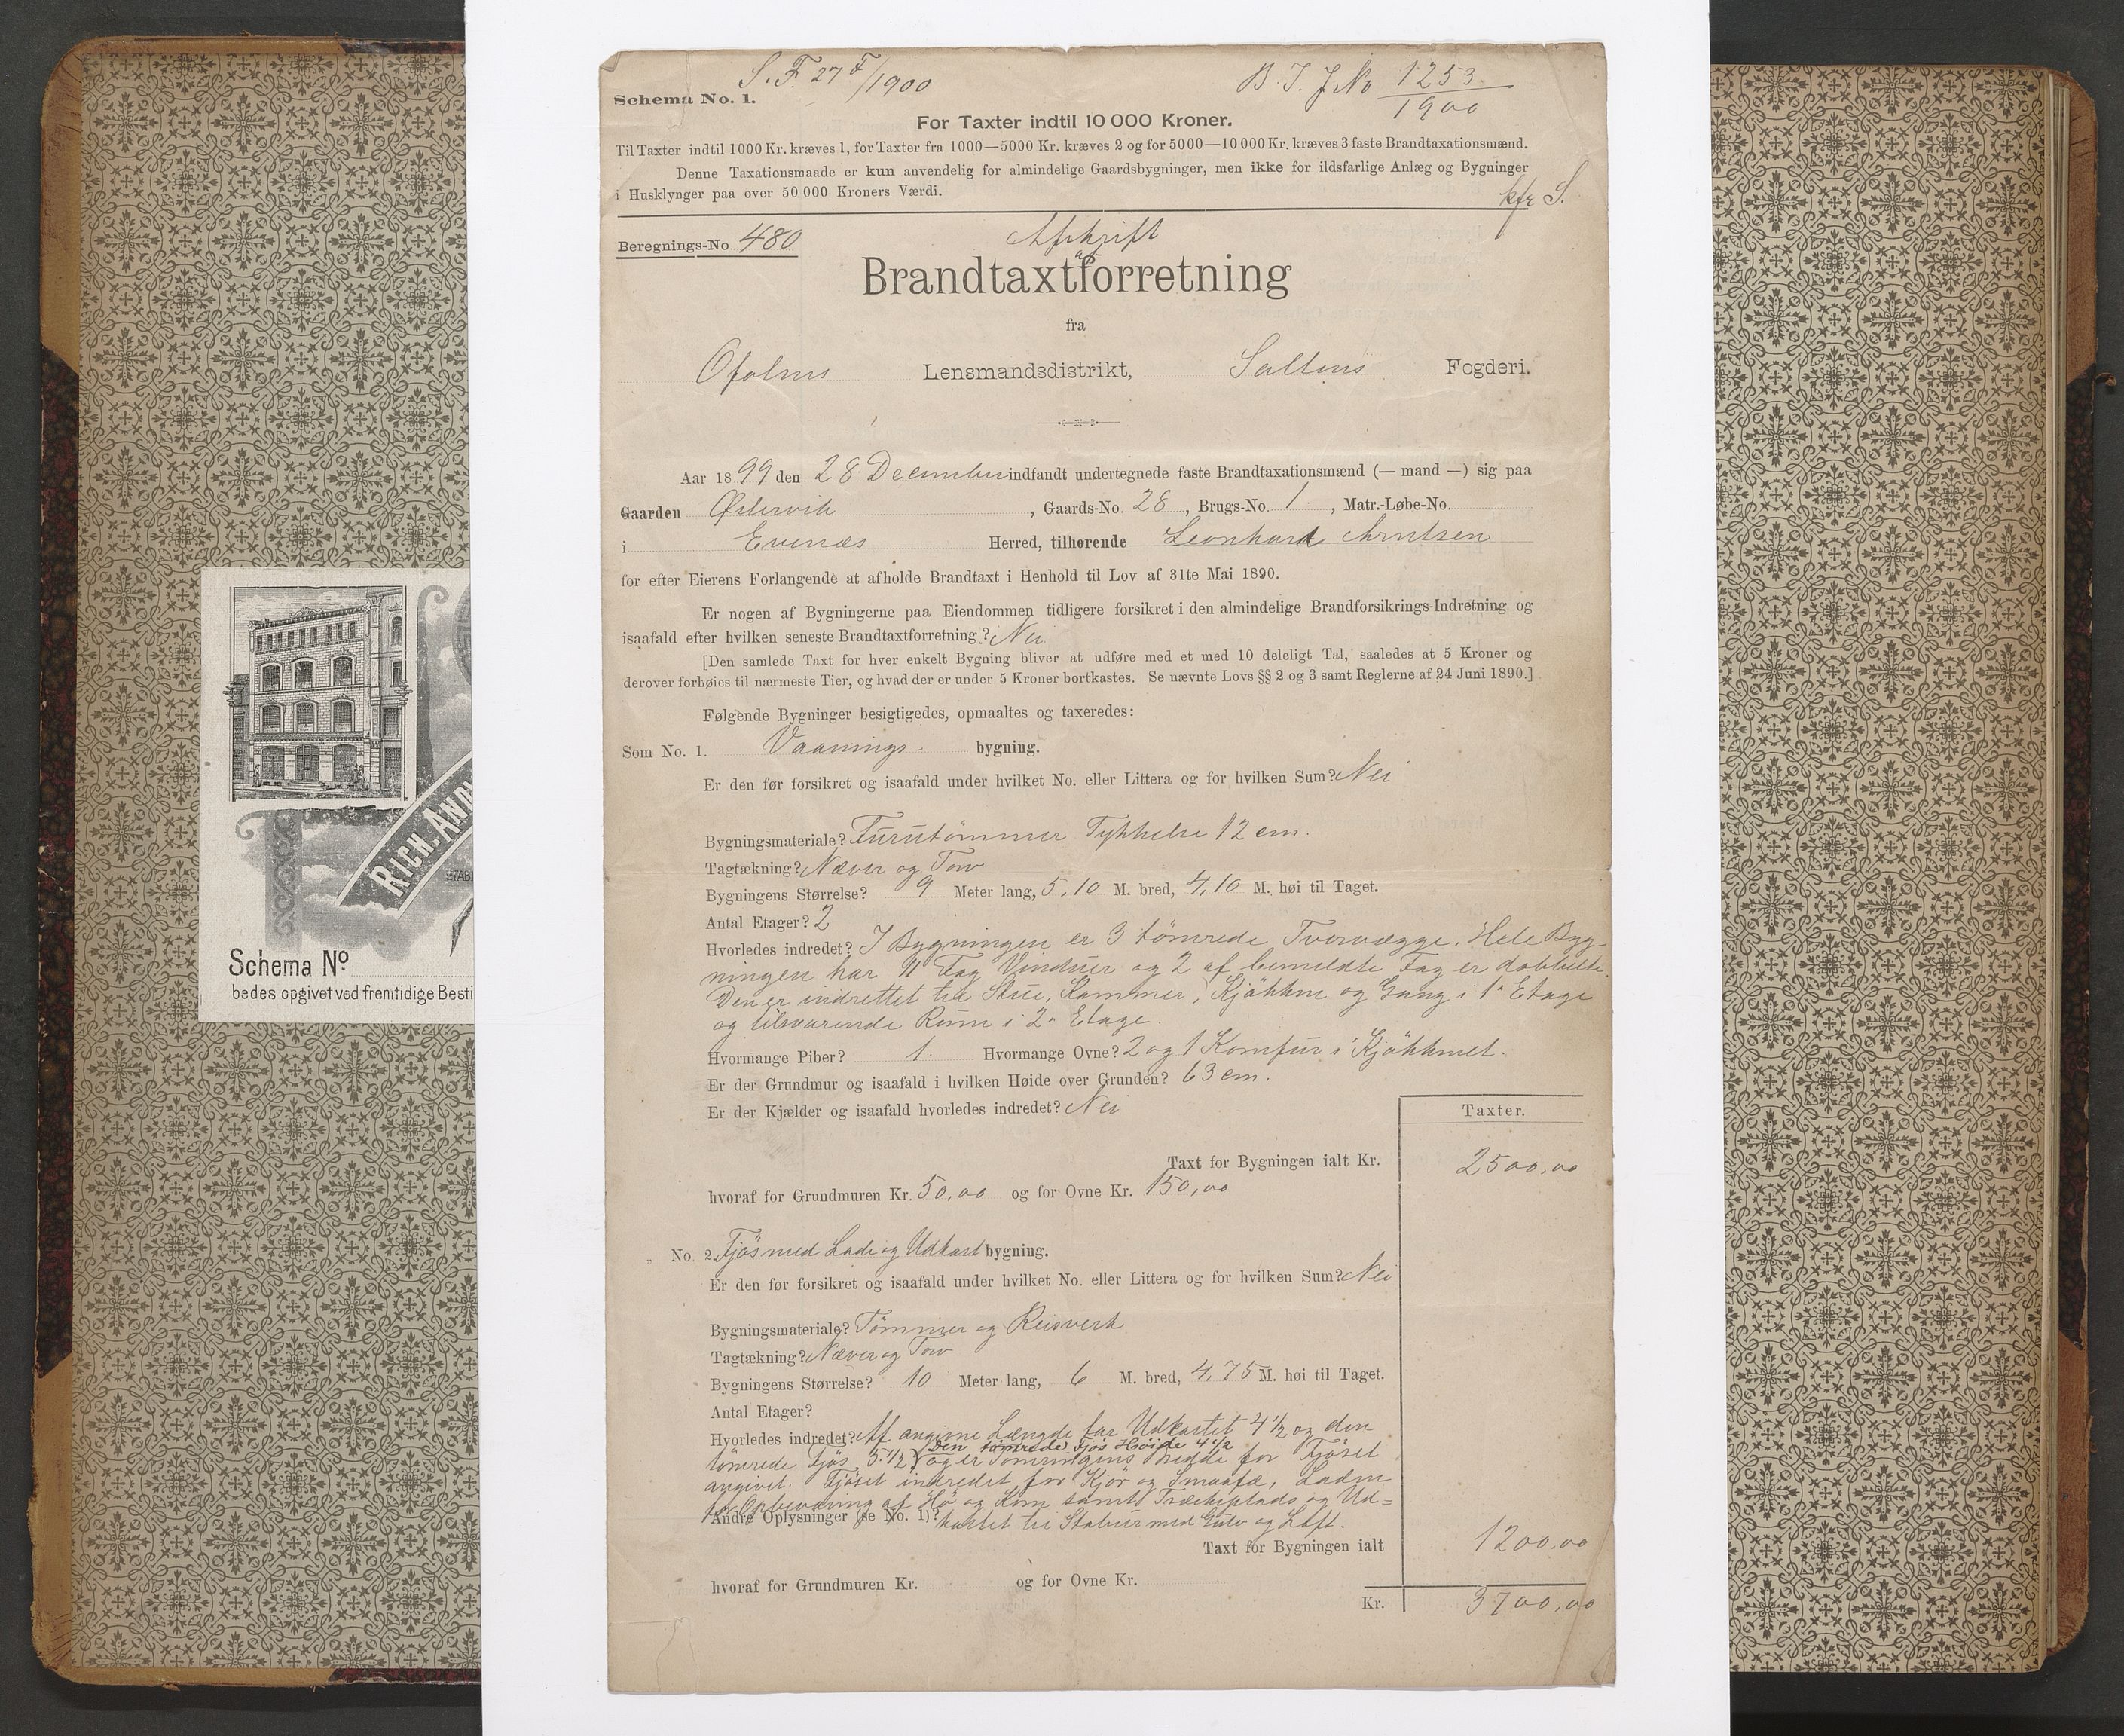 S. F. 27 /1900
B. T. J No 1253
1900
Schema No. 1.
For Taxter indtil 10 000 Kroner.
Til Taxter indtil 1000 Kr. kræves 1, for Taxter fra 1000—5000 Kr. kræves 2 og for 5000—10 000 Kr. kræves 3 faste Brandtaxationsmænd.
Denne Taxationsmaade er kun anvendelig for almindelige Gaardsbygninger, men ikke for ildsfarlige Anlæg og Bygninger
i Husklynger paa over 50 000 Kroners Værdi.
kfr S.
Beregnings-No 480
Afskrift
af
Brandtaxtforretning
fra
Ofotens Lensmandsdistrikt, Saltens Fogderi.
Aar 1899 den 28 December indfandt undertegnede faste Brandtaxationsmænd (— mand —) sig paa
Gaarden Østervik , Gaards-No. 28 , Brugs-No. 1 , Matr.-Løbe-No.
i Evenæs Herred, tilhørende Leonhard Arntsen
for efter Eierens Forlangende at afholde Brandtaxt i Henhold til Lov af 31te Mai 1890.
Er nogen af Bygningerne paa Eiendommen tidligere forsikret i den almindelige Brandforsikrings-Indretning og
isaafald efter hvilken seneste Brandtaxtforretning? Nei
[Den samlede Taxt for hver enkelt Bygning bliver at udføre med et med 10 deleligt Tal, saaledes at 5 Kroner og
derover forhøies til nærmeste Tier, og hvad der er under 5 Kroner bortkastes. Se nævnte Lovs §§ 2 og 3 samt Reglerne af 24 Juni 1890.]
Følgende Bygninger besigtigedes, opmaaltes og taxeredes:
Som No. 1. Vaanings- bygning.
Er den før forsikret og isaafald under hvilket No. eller Littera og for hvilken Sum? Nei
Bygningsmateriale? Furutömmer Tykkelse 12 cm.
Tagtækning? Næver og Torv
Bygningens Størrelse? 9 Meter lang, 5,10 M. bred, 4,10 M. høi til Taget.
Antal Etager? 2
Hvorledes indredet? I Bygningen er 3 tömrede Tvervægge. Hele Byg-
ningen har 11 Fag Vinduer og 2 af bemeldte Fag er dobbelte.
Den er indrettet til Stue, Kammer, Kjökken og Gang i 1ª Etage
og tilsvarende Rum i 2ª Etage.
Hvormange Piber? 1. Hvormange Ovne? 2 og 1 Komfur i Kjökkenet.
Er der Grundmur og isaafald i hvilken Høide over Grunden? 63 cm.
Er der Kjælder og isaafald hvorledes indredet? Nei
Taxter.
Taxt for Bygningen ialt Kr. 2500,00
hvoraf for Grundmuren Kr. 50,00 og for Ovne Kr. 150,00
„ No. 2. Fjös med Lade og Udkast bygning.
Er den før forsikret og isaafald under hvilket No. eller Littera og for hvilken Sum? Nei
Bygningsmateriale? Tömmer og Reisverk
Tagtækning? Næver og Torv
Bygningens Størrelse? 10 Meter lang, 6 M. bred, 4,75 M. høi til Taget.
Antal Etager?
Hvorledes indredet? Af angivne Længde har Udkastet 4 1/2 og den
Den tömrede Fjös Höide 4 1/2
tömrede Fjös 5 1/2 og er Tömringens Bredde for Fjöset
angivet. Fjöset indredet for Kjör og Smaafæ, Laden
for Opbevaring af Hö og Korn samt Træskeplads og Ud=
Andre Oplysninger (se No. 1)? kastet til Stabur med Gulv og Loft.
Taxt for Bygningen ialt 1200,00
hvoraf for Grundmuren Kr. og for Ovne Kr.
Kr. 3700,00
RICH. AND
ETABL
Schema No
bedes opgivet ved fremtidige Besti